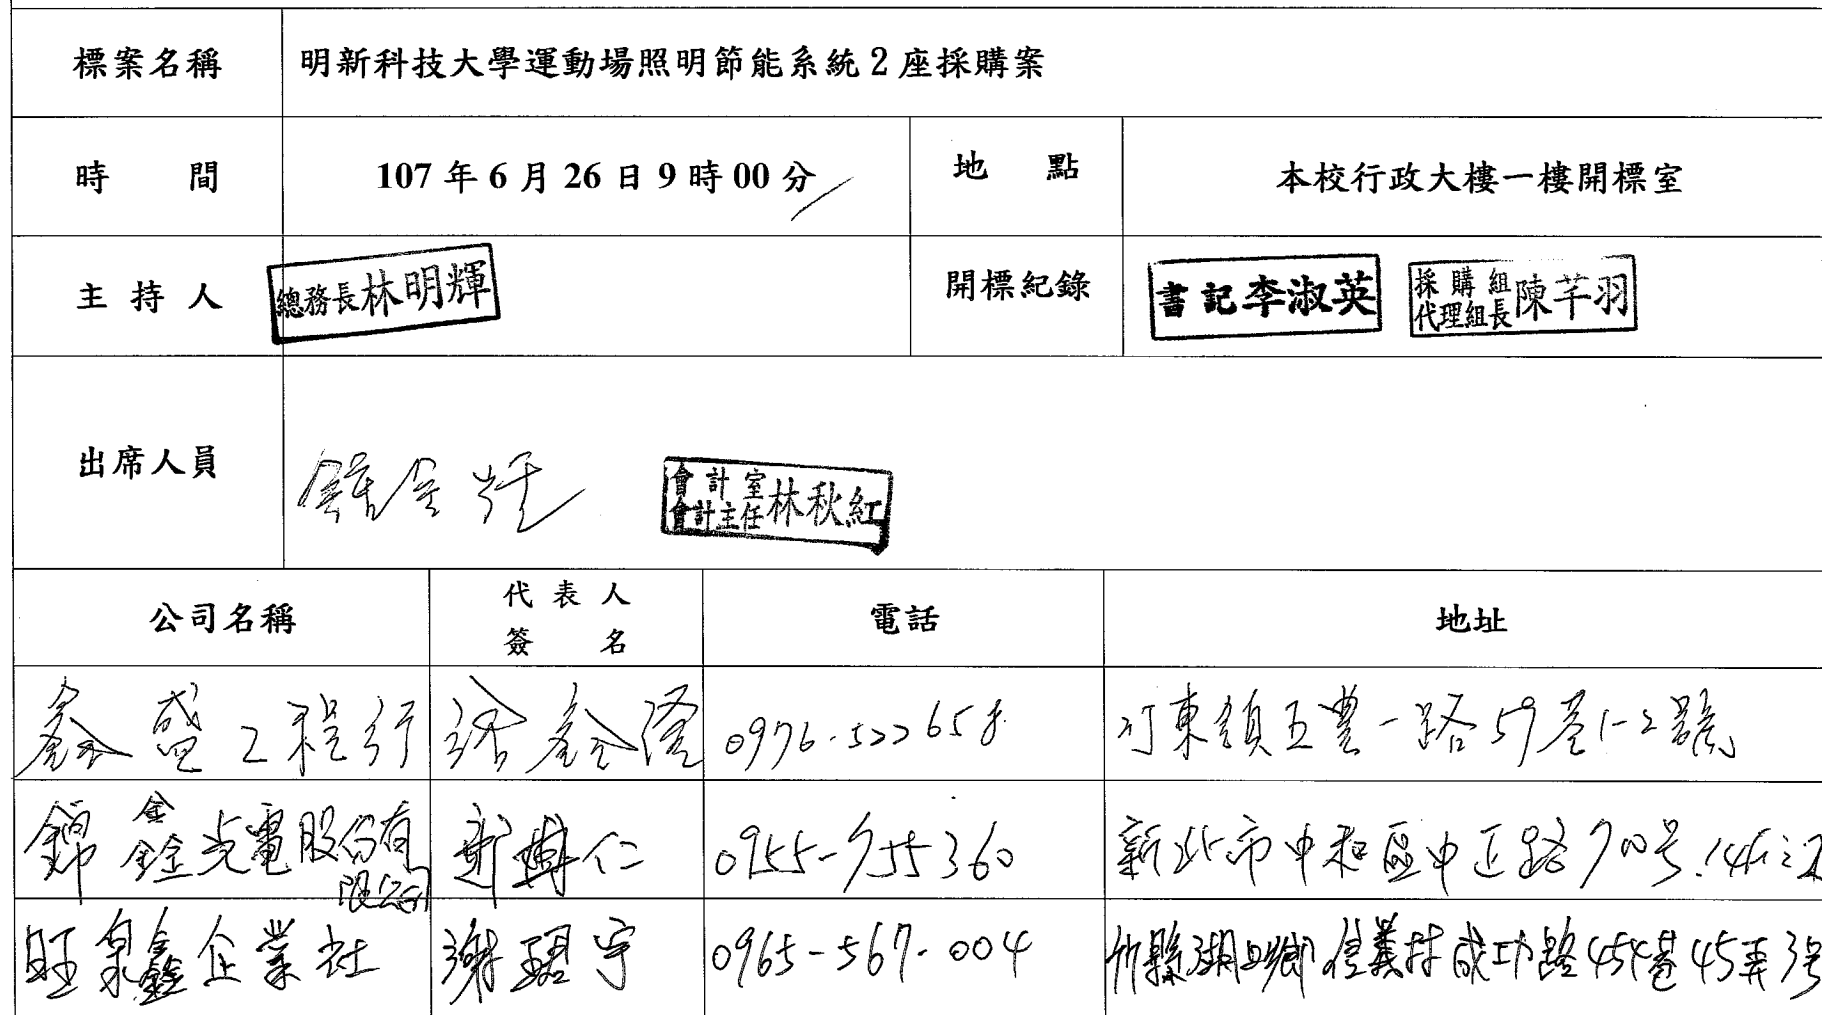 標案名稱 明新科技大學運動場照明節能系統2座採購案
時 間 107年6月26日9時00分 地 點 本校行政大樓一樓開標室
主持人 總務長林明輝 開標紀錄 書記李淑英 採購組代理組長陳芊羽
出席人員 會計室會計主任林秋紅
公司名稱 代表人簽名 電話 地址
鑫盛工程行 0976-522658 竹東鎮五豐一路59巷1-2號
錦鑫光電股份有限公司 博仁 0955-755360 新北市中和區中正路70号
旺泉鑫企業社 謝珺宇 0965-567-004 竹縣湖口鄉信義村成功路454巷45弄3号